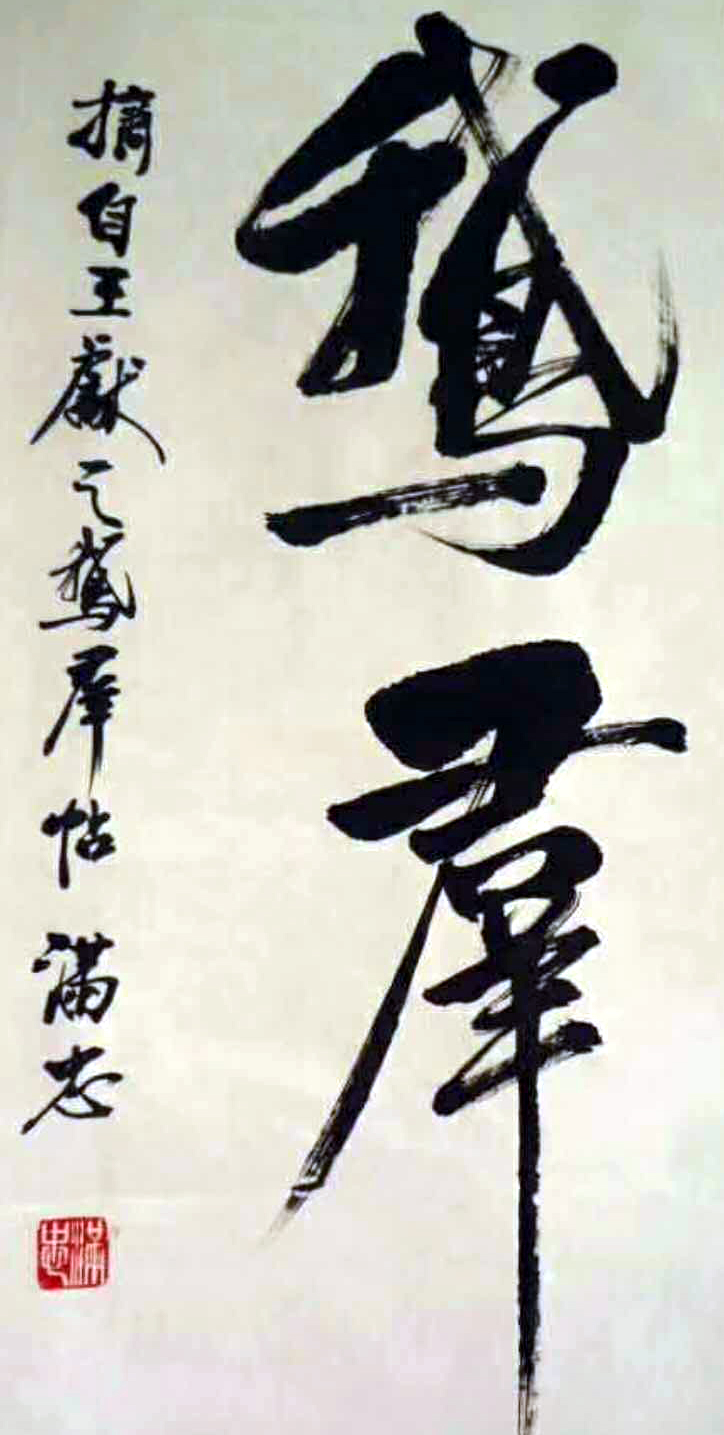 鵞羣
摘自王獻之鵞羣帖 滿志
滿志